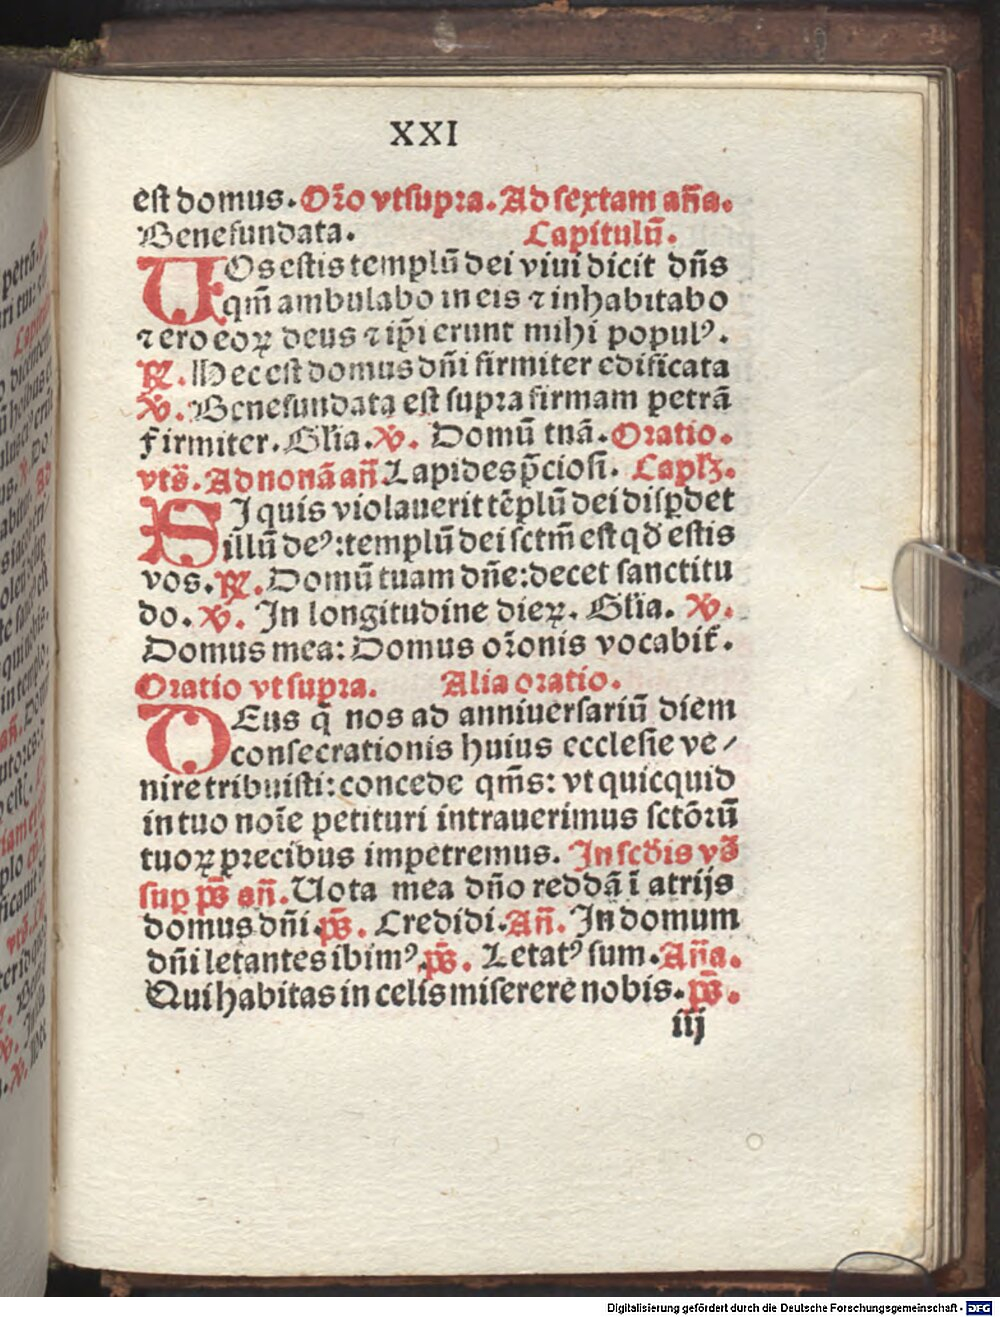 XXI
est domus. Oꝛo vtsupꝛa. Ad sextam aña.
Benefundata. Capitulū.
UOs estis templū dei viui dicit dñs
qm̄ ambulabo in eis ⁊ inhabitabo
⁊ ero eoꝝ deus ⁊ ip̄i erunt mihi popul⁹.
℟. Hec est domus dñi firmiter edificata
℣. Benefundata est supꝛa firmam petrā
firmiter. Gl̄ia. ℣. Domū tuā. Oratio.
vts̄. Ad nonā an̄ Lapides p̄ciosi. Capl̄ꝫ.
SI quis violauerit tēplū dei disꝑdet
illū de⁹: templū dei sctm̄ est qd̄ estis
vos. ℟. Domū tuam dñe: decet sanctitu
do. ℣. In longitudine dieꝝ. Gl̄ia. ℣.
Domus mea: Domus oꝛonis vocabit̄.
Oratio vt supꝛa. Alia oꝛatio.
DEus q̄ nos ad anniuersariū diem
consecrationis huius ecclesie ve⸗
nire tribuisti: concede qm̄s: vt quicquid
in tuo noīe petituri intrauerimus sctōꝛū
tuoꝝ pꝛecibus impetremus. In scd̄is vs̄
suꝑ ps̄ an̄. Uota mea dño reddā ī atrijs
domus dñi. ps̄. Credidi. An̄. In domum
dñi letantes ibim⁹. ps̄. Letat⁹ sum. Aña.
Qui habitas in celis miserere nobis. ps̄.
iij
Digitalisierung gefördert durch die Deutsche Forschungsgemeinschaft - DFG